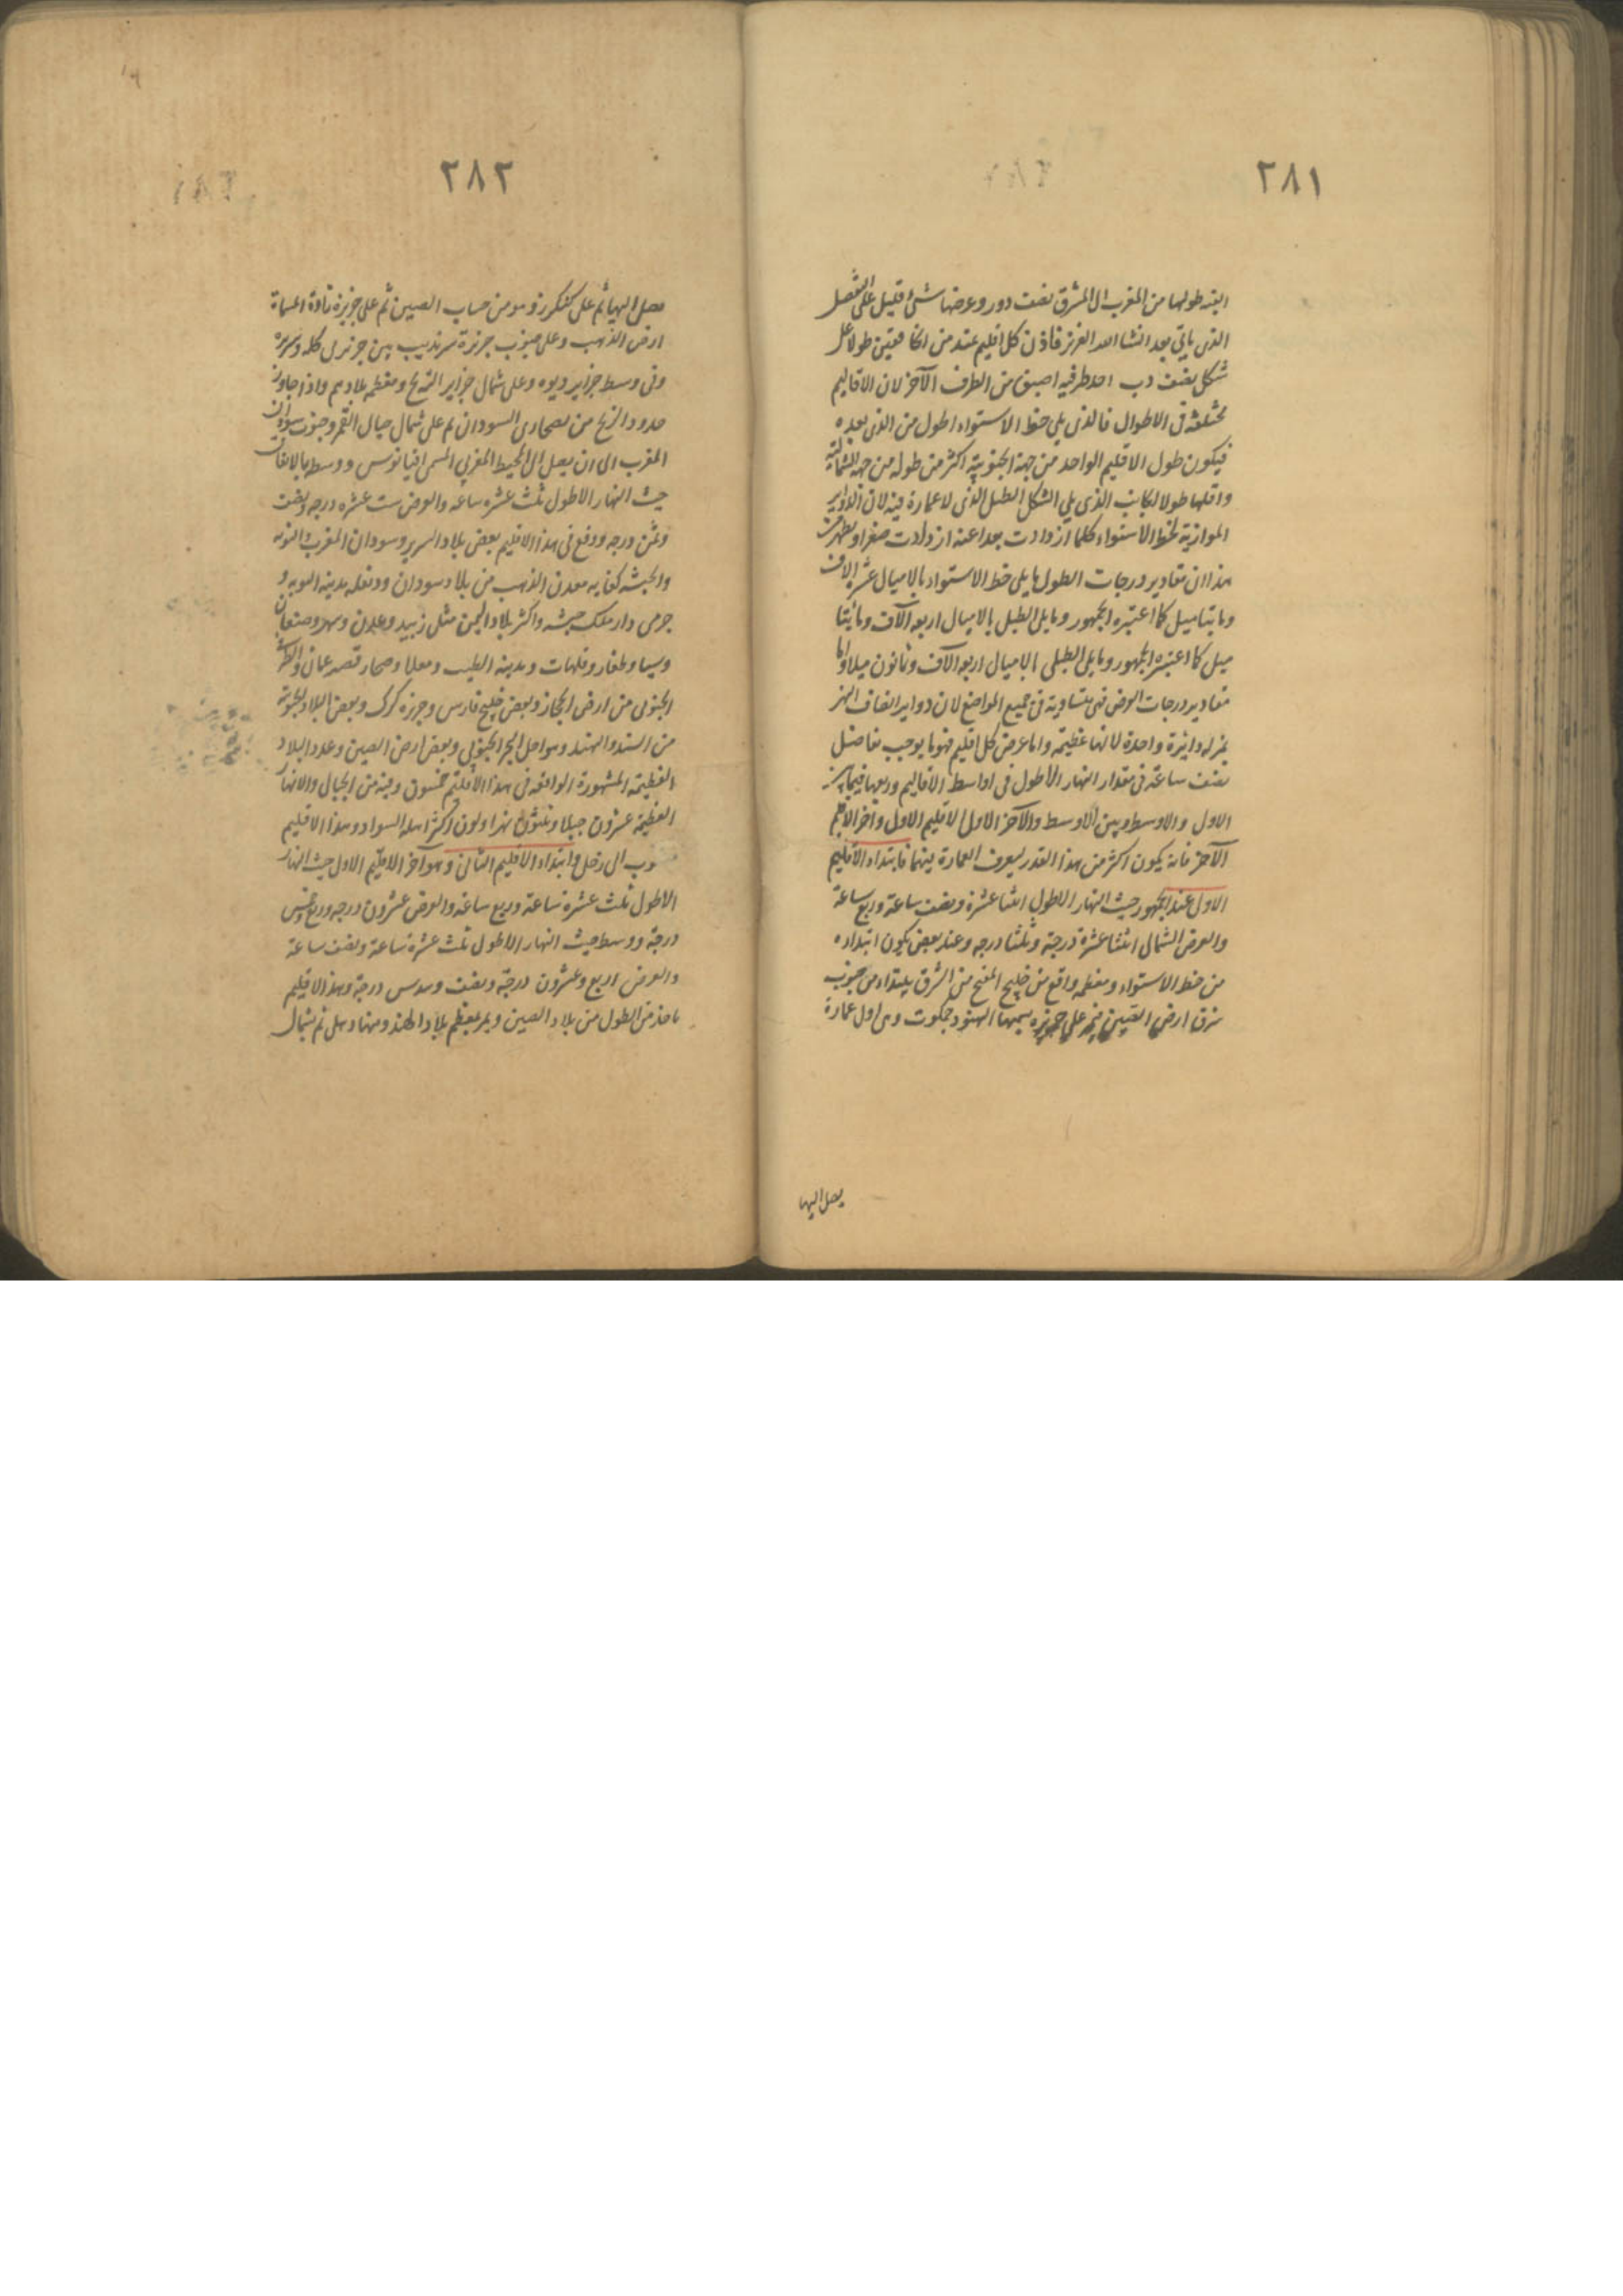 ٢٨١
ابتد طولها من المغرب الى المشرق نصف دور وعرضها شئ قليل على التفصيل
الذى ياتى بعد انشا الله العزيز فاذن كل اقليم عند من الخافقين طولا على
شكل نصف دب احد طرفيه اضيق من الطرف الآخر لان الاقاليم
مختلفة فى الاطوال فالذى يلى خط الاستواء اطول من الذى بعده
فيكون طول الاقليم الواحد من جهة الجنوبية اكثر من طوله من جهة الشمالية
واقلها طولا لجانب الذى يلى الشكل الطبل الذى لا عمارة فيه لان الدواير
الموازية لخط الاستواء كلما ازدادت بعدا عنه ازدادت صغرا وبظهر من
هذا ان مقادير درجات الطول مايلى خط الاستواء بالاميال عشرة الاف
ومايتا ميل كما اعتبره الجمهور ومايلى الطبل بالاميال اربعه آلاف ومائتا
ميل كما اعتبره الجمهور ومايلى الطبلى بالاميال اربعه آلاف وثمانون ميلا واما
مقادير درجات العرض فهى متساوية فى جميع المواضع لان دواير انصاف النهر
بمنزله دائرة واحدة لانها عظيمة واما عرض كل اقليم فهو ما يوجب تفاضل
نصف ساعة فى مقدار النهار الاطول فى اواسط الاقاليم وربعها فيما بين
الاول والاوسط وبين الاوسط والآخر الاول الاقليم الاول وآخر الاقليم
الآخر فانه يكون اكثر من هذا القدر لسعرف العمارة بينهما فابتداء الاقليم
الاول عند الجمهور حيث النهار الاطول اثنتا عشرة ونصف ساعة وربع ساعة
والعرض الشمالى اثنتا عشرة درجة وثلثا درجه وعند بعض يكون ابتداءه
من خط الاستواء ومعظمه واقع من خليج المفتح من الشرق يبتداء من جنوب
شرق ارض الصين فيمر على جزيره يسميها الهنود جمكوت وهى اول عمارة
يصل اليها
٢٨٢
يصل اليها ثم على كنكرز وهو من حساب الصين ثم على جزيرة تاوة المسماة
ارض الذهب وعلى جنوب جزيرة سرنديب بين جزيرتى كله وسريره
وفى وسط جزاير ديوه وعلى شمال جزاير الزنج ومعظم بلادهم واذا جاوز
حدود الزنج من بصحارى السودان ثم على شمال جبال القمر وجنوب سودان
المغرب الى ان يصل الى المحيط المغربى المسمى اقيانوس ووسطه بالاتفاق
حيث النهار الاطول ثلث عشره ساعه والعرض ست عشره درجه ونصف
وثمن درجه ووقع فى هذا الاقليم بعض بلاد السرير وسودان المغرب النوبه
والحبشه كغانه معدن الذهب من بلاد سودان ودنقله مدينه النوبه و
جرمى دار ملك حبشه واكثر بلاد اليمن مثل زبيد وعدن وسهر وصنعان
وسبا وظفار وقلهات ومدينه الطيب ومعلا وصحار قصبه عمان والطرف
الجنوبى من ارض الحجاز وبعض خليج فارس وجزيره كرك وبعض البلاد الجنوبية
من السند والهند وسواحل البحر الجنوبى وبعض ارض الصين وعدد البلاد
العظيمة المشهورة الواقعه فى هذا الاقليم خمسون وفيه من الجبال والانهار
العظيمة عشرون جبلا وثلثون نهرا ولون اكثر اهله السواد وهذا الاقليم
منسوب الى زحل وابتداء الاقليم الثانى وهو آخر الاقليم الاول حيث النهار
الاطول ثلث عشرة ساعة وربع ساعة والعرض عشرون درجه وربع وخمس
درجة ووسطه حيث النهار الاطول ثلث عشرة ساعة ونصف ساعة
والعرض اربع وعشرون درجة ونصف وسدس درجة وهذ الاقليم
ياخذ من الطول من بلاد الصين ويمر بمعظم بلاد الهند ومنها دهلى ثم بشمال